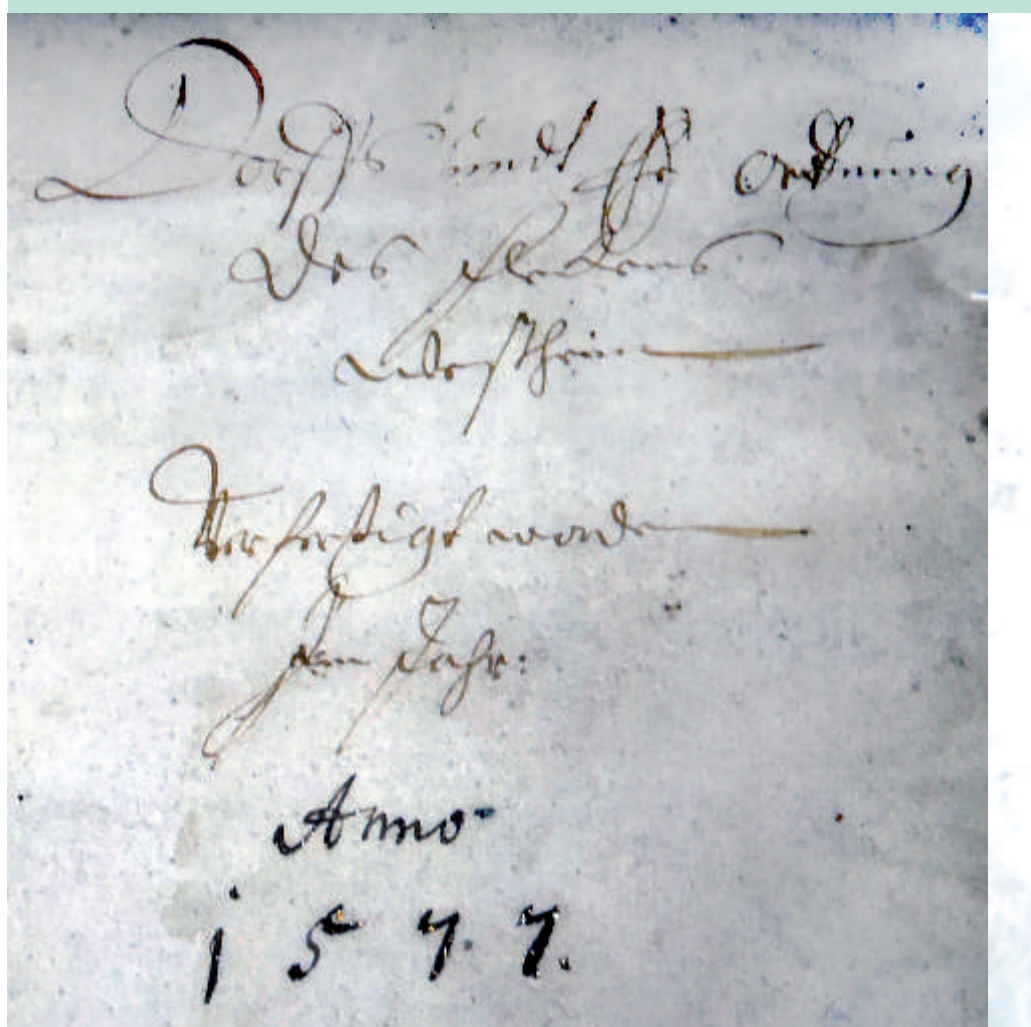 Dorffs undt Ehe Ordnung
des Fleckens
Westheim
Verfertigt worden
Im Jahr:
Anno
1577.